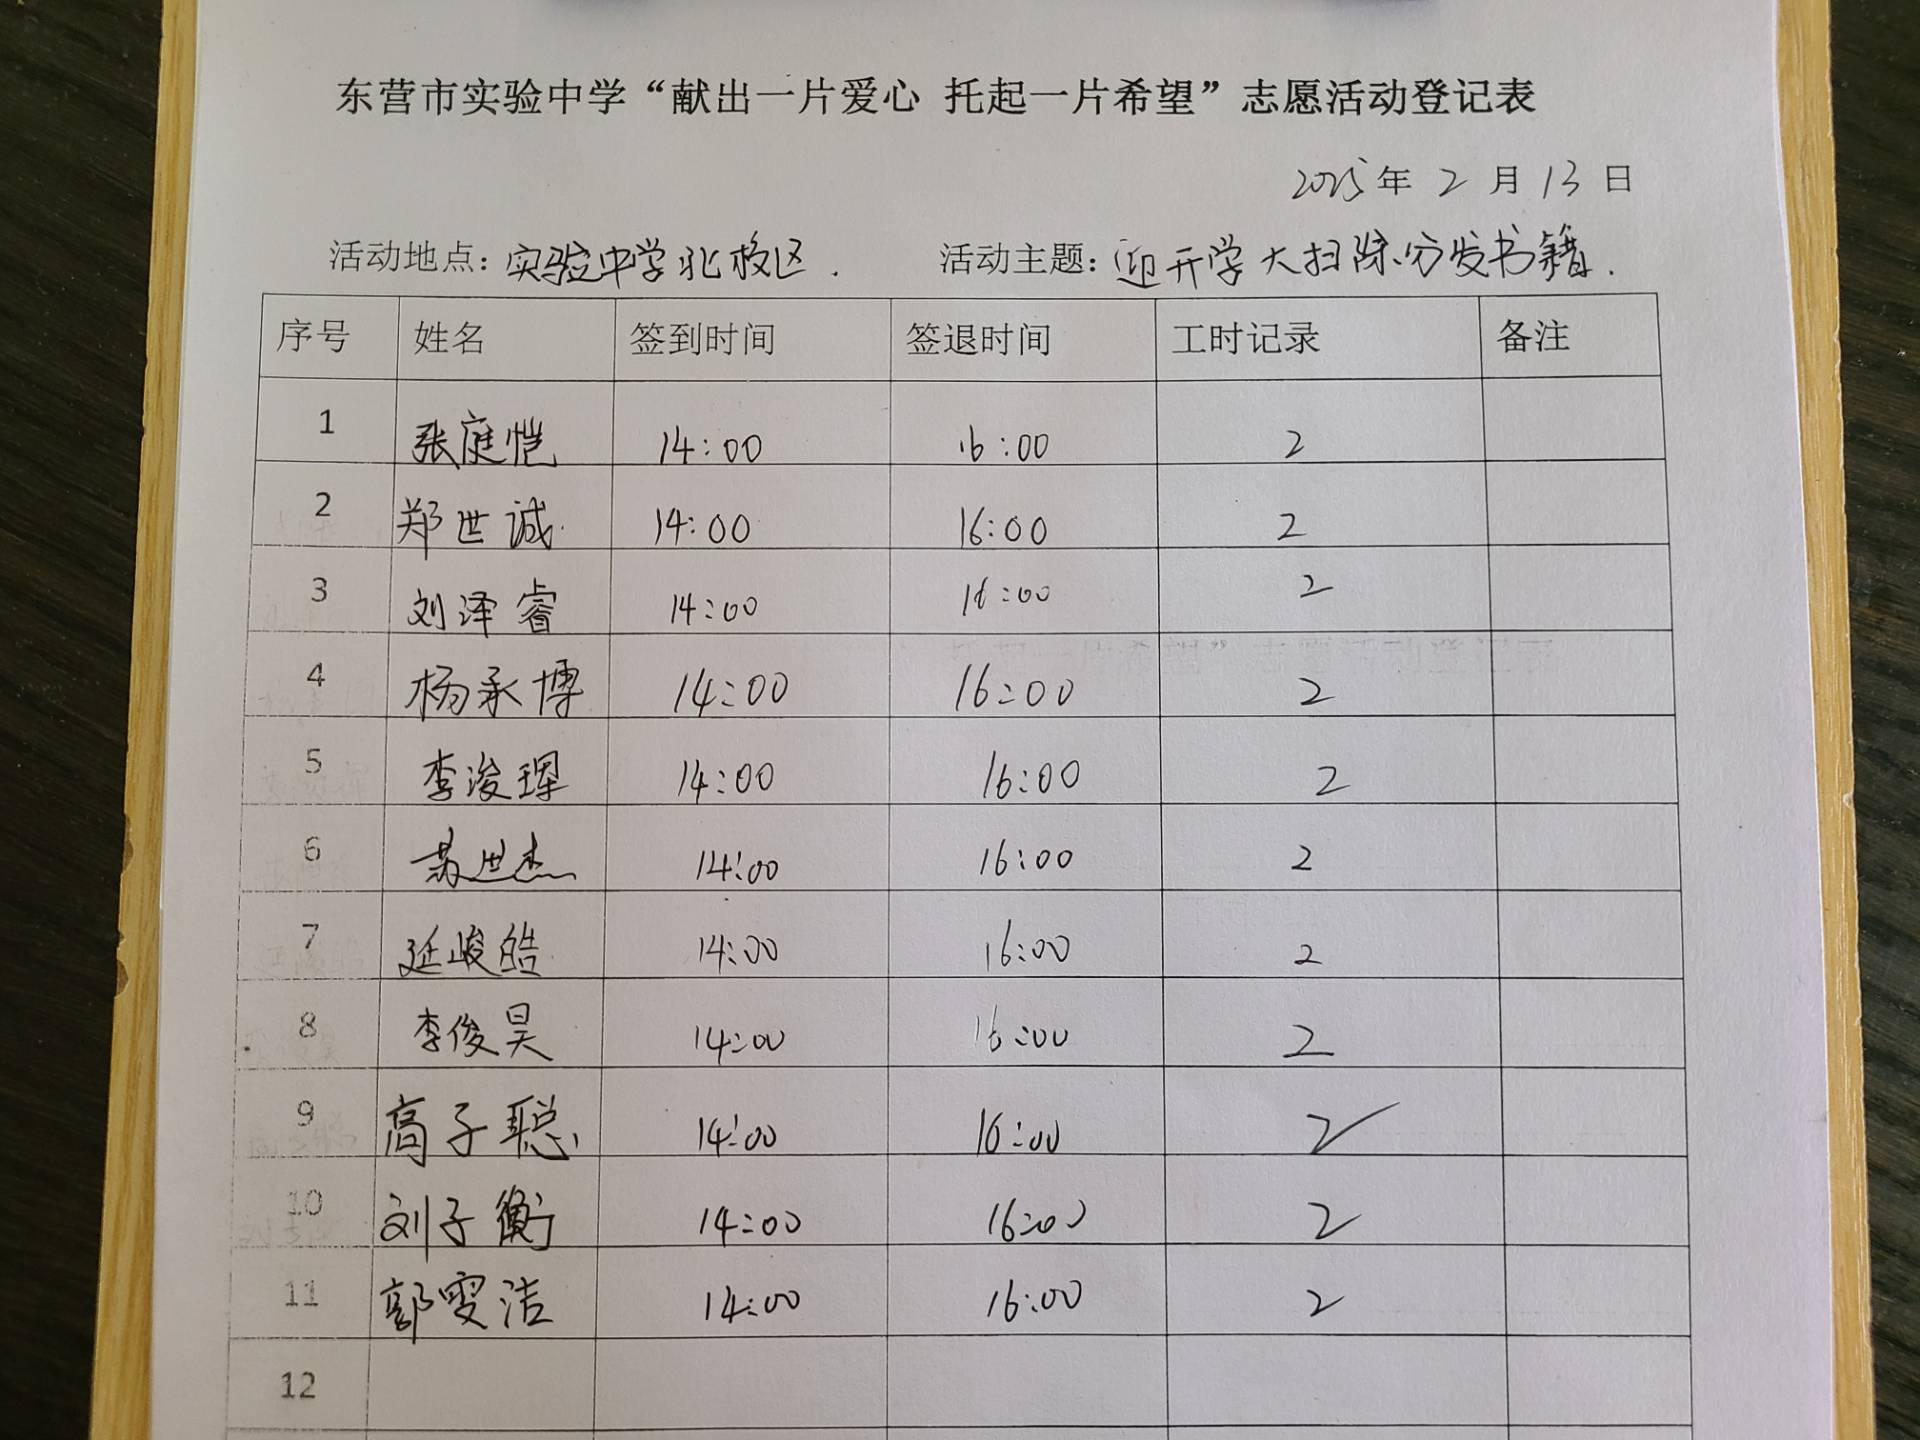 东营市实验中学“献出一片爱心 托起一片希望”志愿活动登记表
2025年 2 月 13 日
活动地点：实验中学北校区. 活动主题：迎开学大扫除、分发书籍.
序号 姓名 签到时间 签退时间 工时记录 备注
1 张庭恺 14:00 16:00 2
2 郑世诚 14:00 16:00 2
3 刘泽睿 14:00 16:00 2
4 杨承博 14:00 16:00 2
5 李浚琿 14:00 16:00 2
6 苏世杰 14:00 16:00 2
7 延峻皓 14:00 16:00 2
8 李俊昊 14:00 16:00 2
9 高子聪 14:00 16:00 2
10 刘子衡 14:00 16:00 2
11 郭雯洁 14:00 16:00 2
12